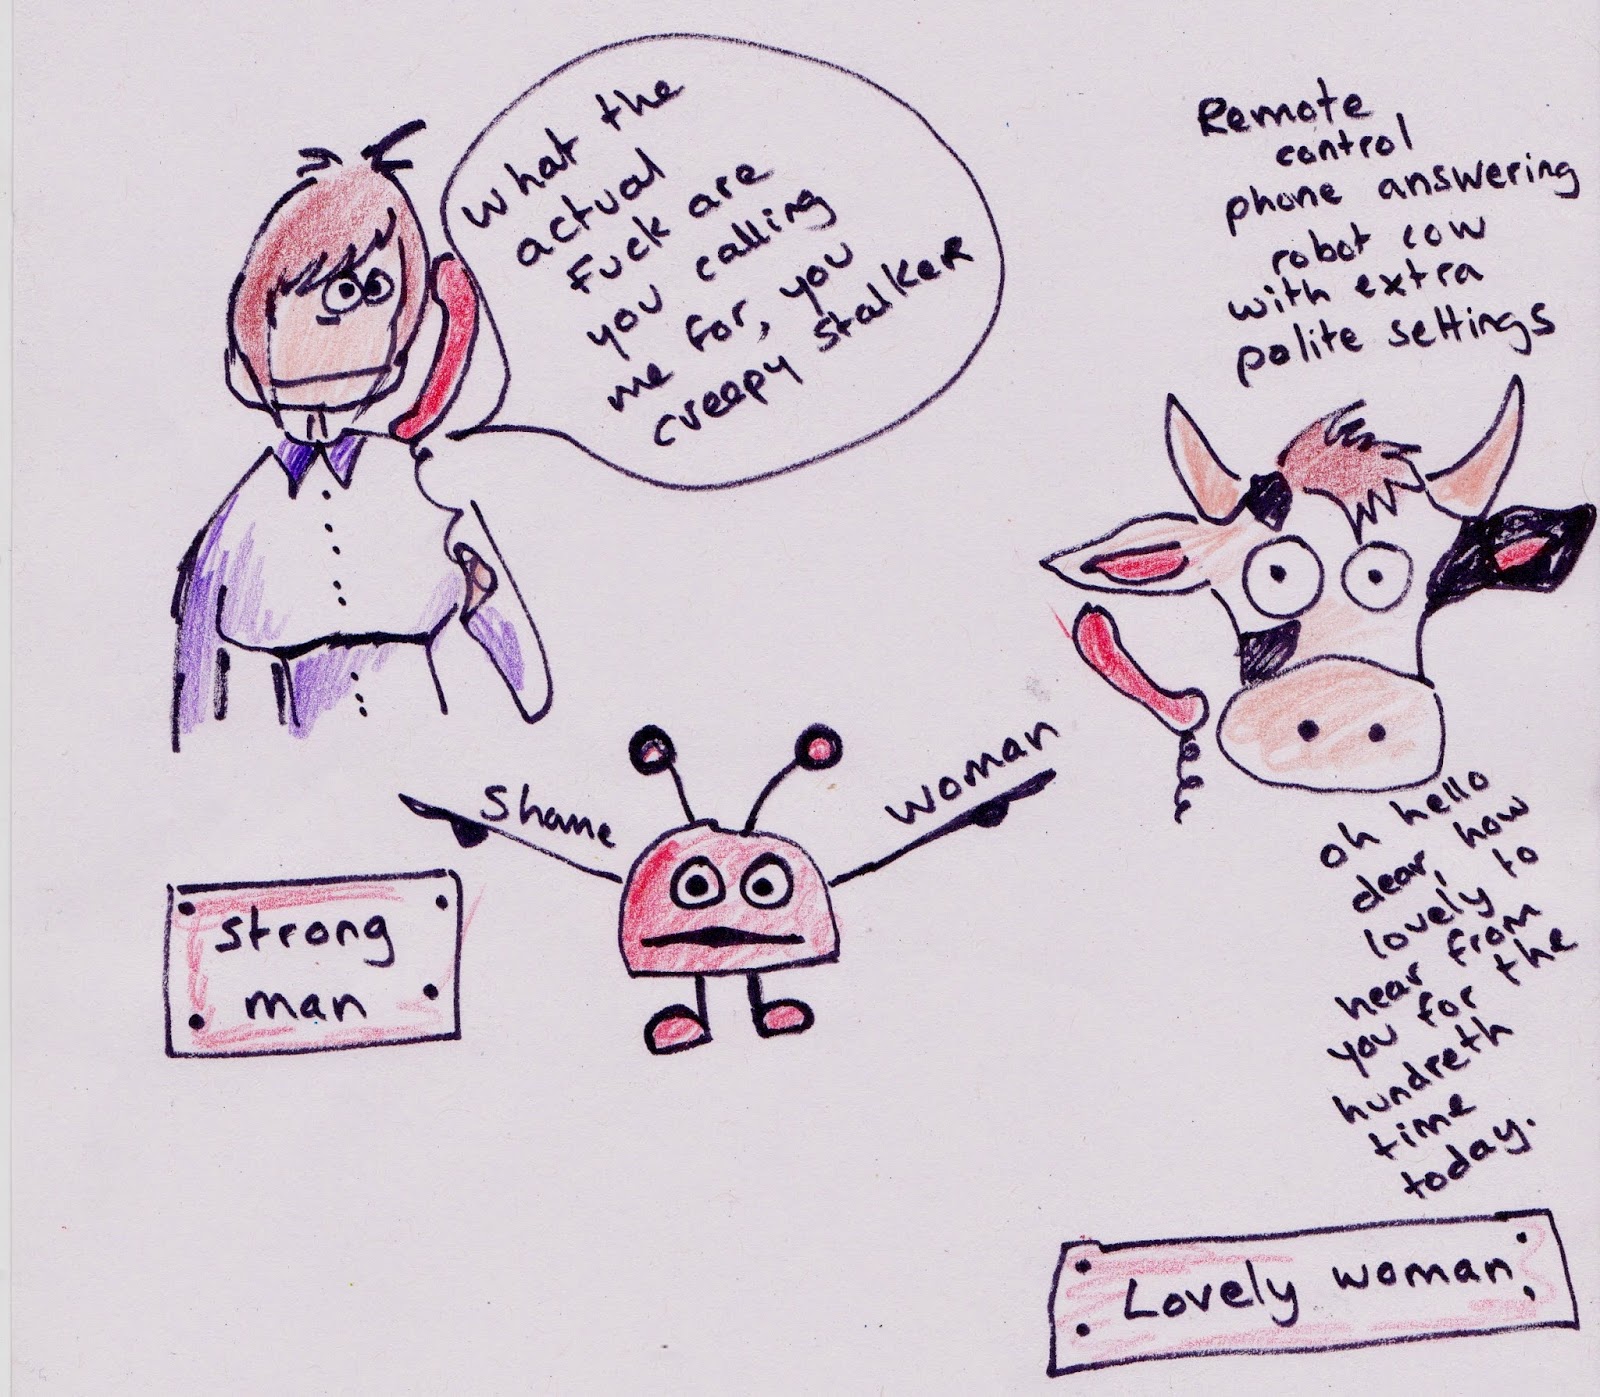 What the
actual
Fuck are
you calling
me for, you
creepy stalker
Remote
control
phone answering
robot cow
with extra
polite settings
Shame
Woman
strong
man
oh hello
dear, how
lovely to
hear from
you for the
hundreth
time
today.
Lovely woman